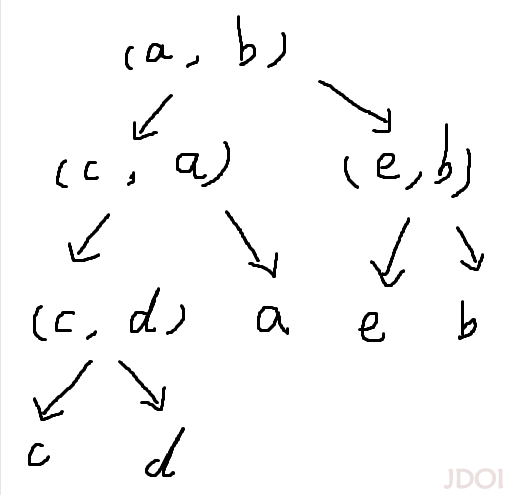 (a, b)
(c, a) (e, b)
(c, d) a e b
c d
JDOI